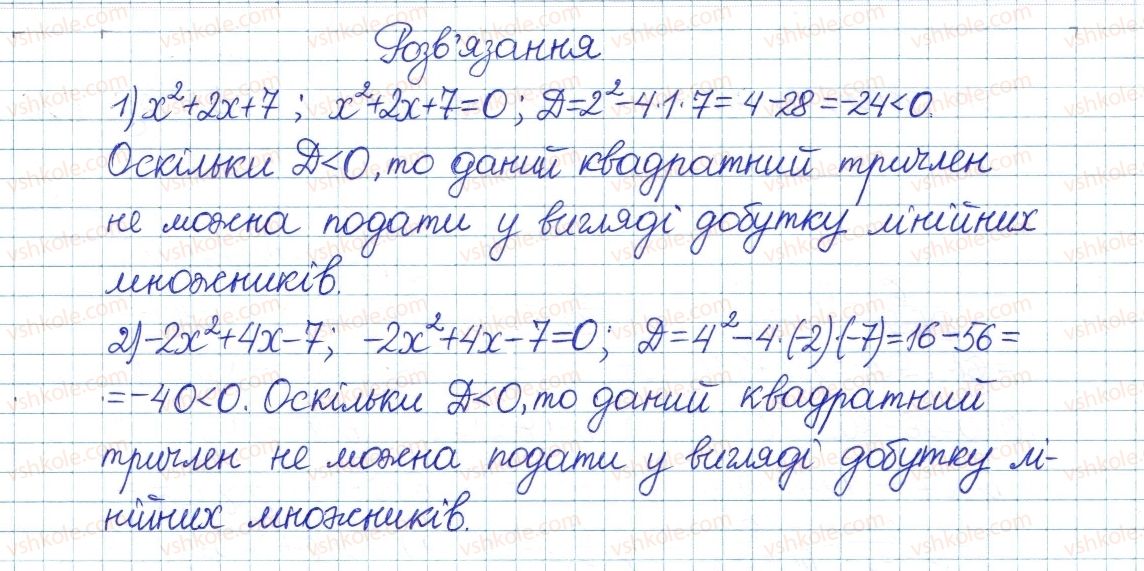 Розв'язання
1) x²+2x+7 ; x²+2x+7=0 ; D=2²-4·1·7= 4-28 =-24<0.
Оскільки D<0, то даний квадратний тричлен
не можна подати у вигляді добутку лінійних
множників.
2) -2x²+4x-7; -2x²+4x-7=0; D=4²-4·(-2)·(-7)=16-56=
=-40<0. Оскільки D<0, то даний квадратний
тричлен не можна подати у вигляді добутку лі-
нійних множників.